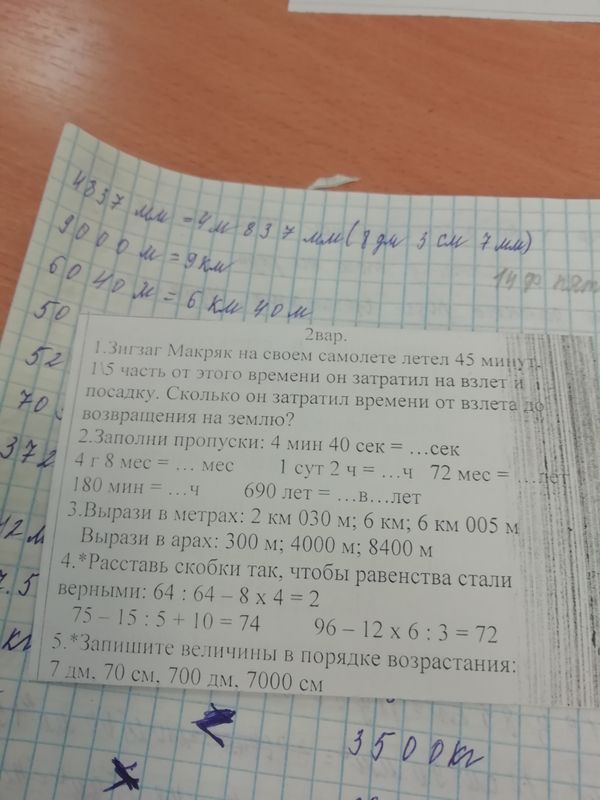 4837 мм = 4 м 837 мм (8 дм 3 см 7 мм)
9000 м = 9 км
6040 м = 6 км 40 м
50
52
70
372
42 м
7.5
кг
2вар.
1.Зигзаг Макряк на своем самолете летел 45 минут,
1\5 часть от этого времени он затратил на взлет и
посадку. Сколько он затратил времени от взлета до
возвращения на землю?
2.Заполни пропуски: 4 мин 40 сек = …сек
4 г 8 мес = … мес 1 сут 2 ч = …ч 72 мес = …лет
180 мин = …ч 690 лет = …в…лет
3.Вырази в метрах: 2 км 030 м; 6 км; 6 км 005 м
Вырази в арах: 300 м; 4000 м; 8400 м
4.*Расставь скобки так, чтобы равенства стали
верными: 64 : 64 – 8 х 4 = 2
75 – 15 : 5 + 10 = 74 96 – 12 х 6 : 3 = 72
5.*Запишите величины в порядке возрастания:
7 дм, 70 см, 700 дм, 7000 см
3500кг